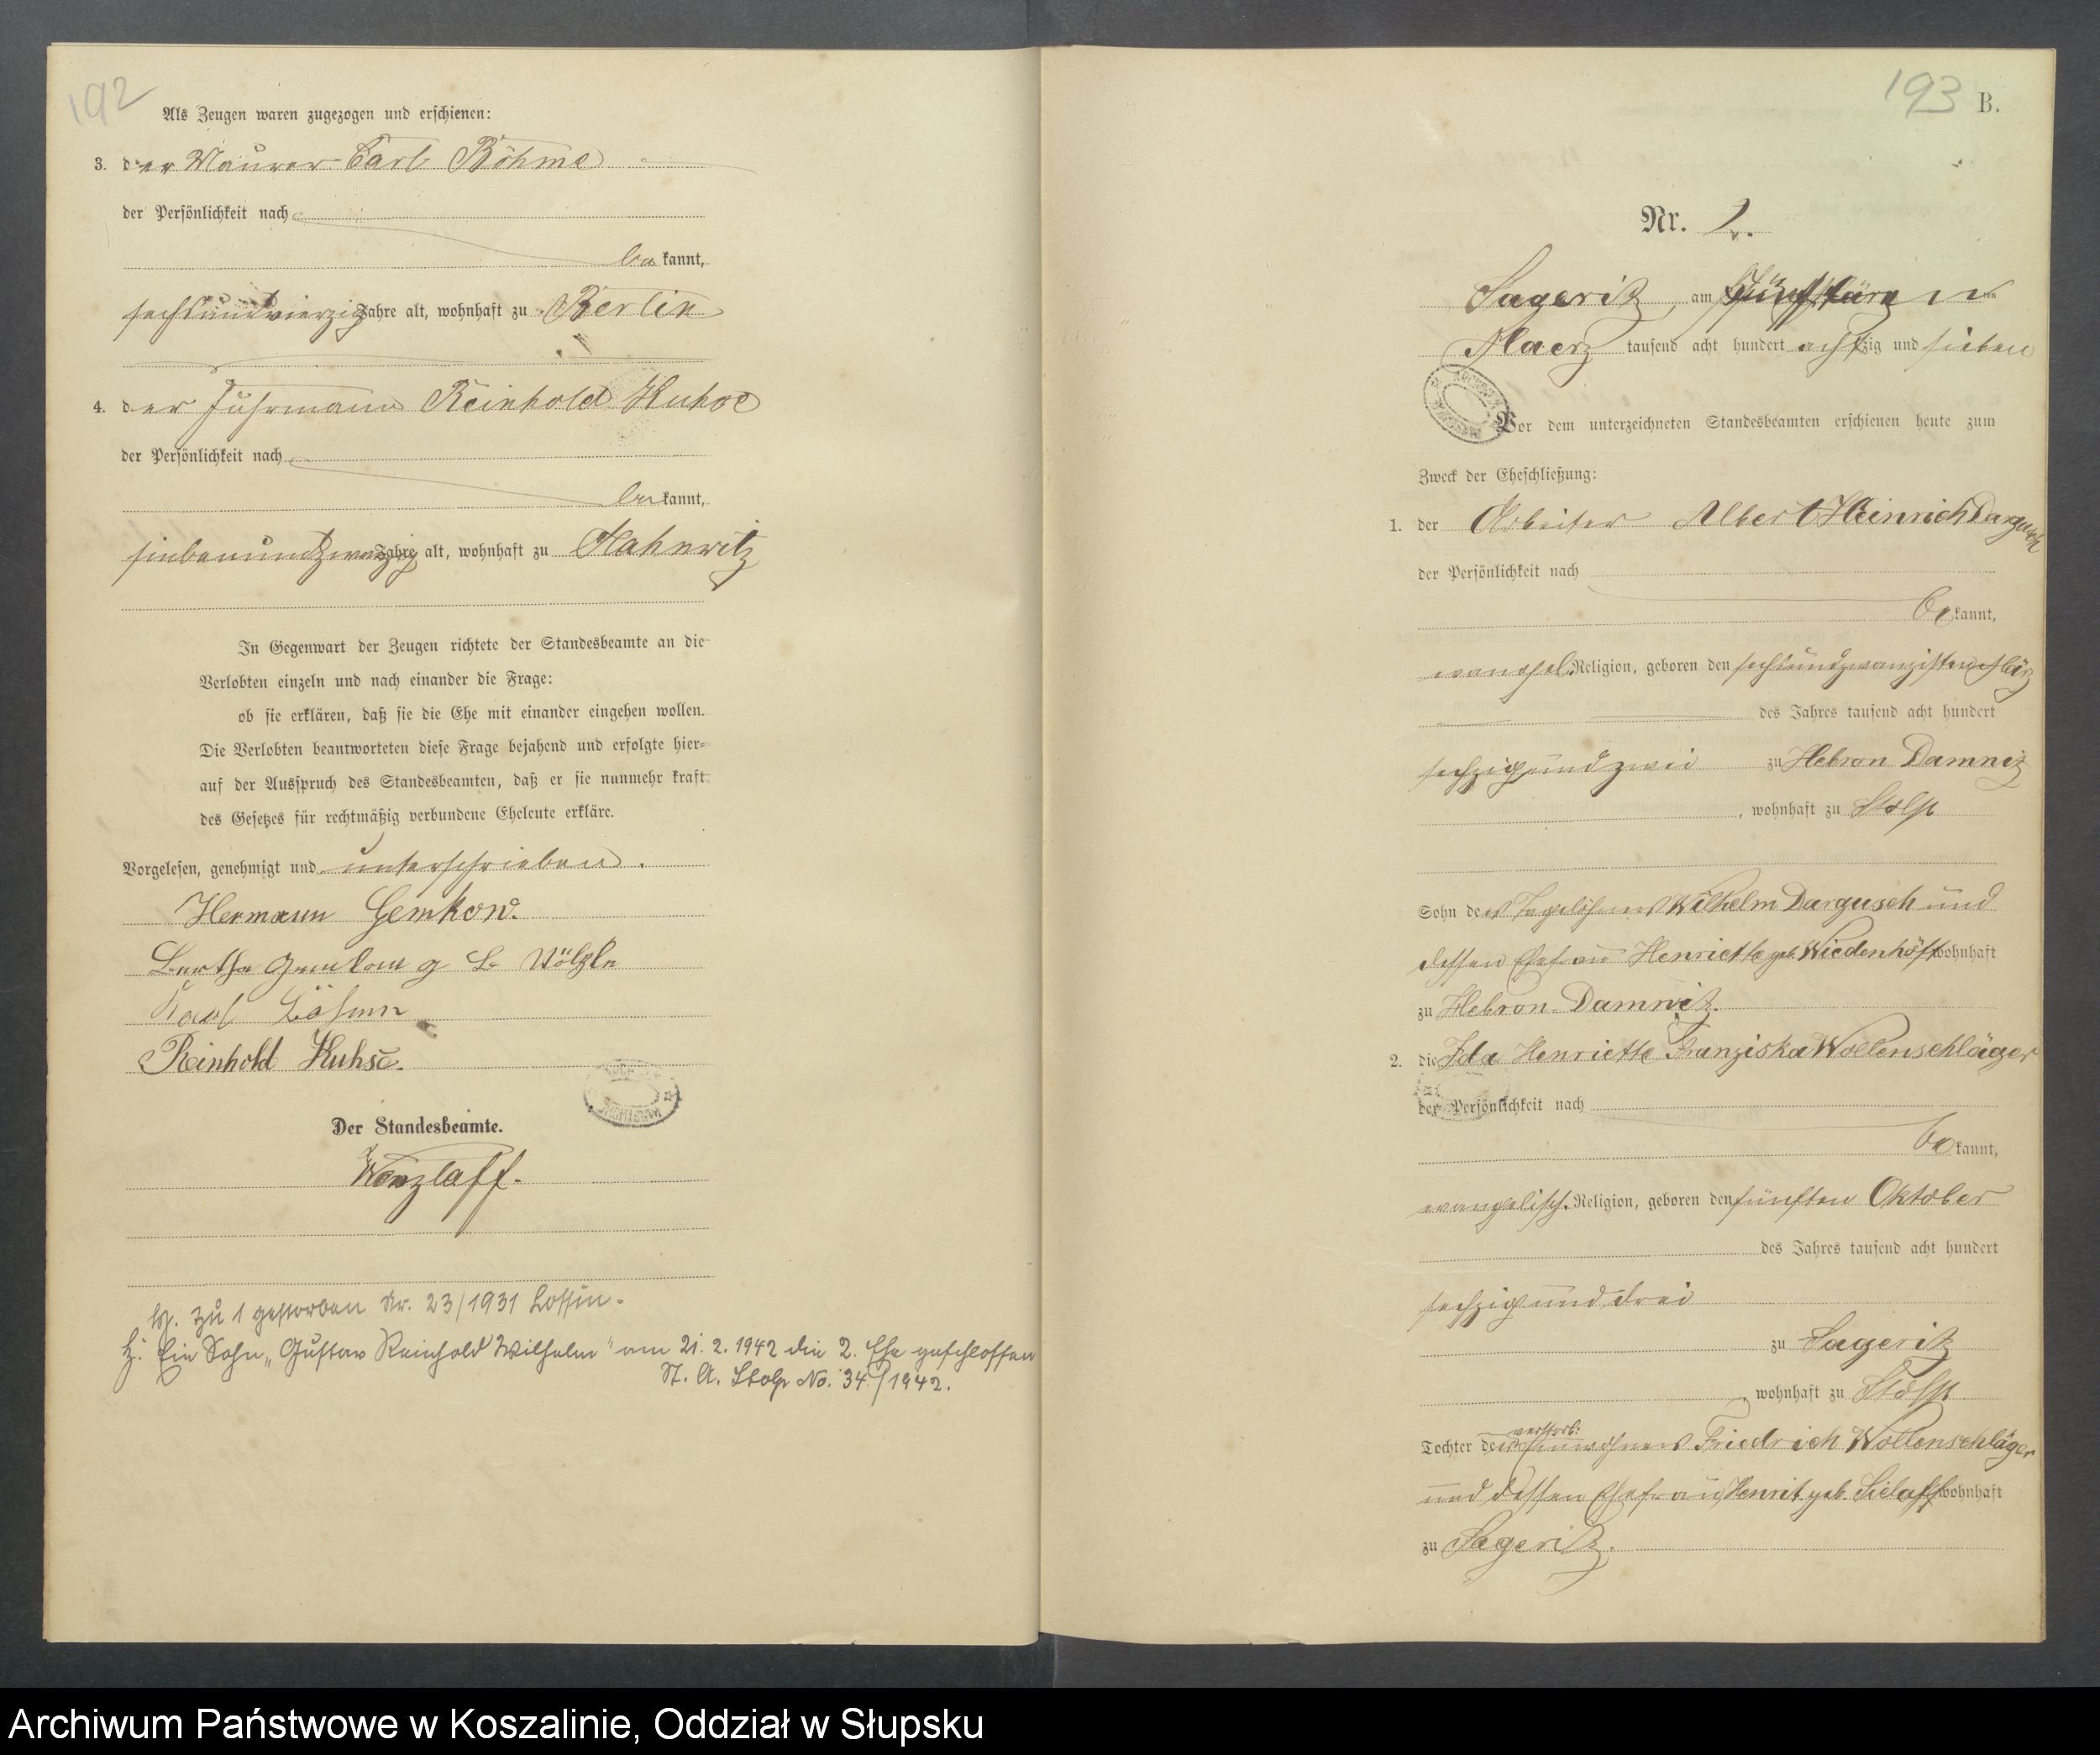 192
Als Zeugen waren zugezogen und erschienen:
3. der Maurer Carl Böhme
der Persönlichkeit nach
bekannt,
sechsundvierzig Jahre alt, wohnhaft zu Berlin
4. der Fuhrmann Reinhold Kuhse
der Persönlichkeit nach
bekannt,
siebenundzwanzig Jahre alt, wohnhaft zu
In Gegenwart der Zeugen richtete der Standesbeamte an die
Verlobten einzeln und nach einander die Frage:
ob sie erklären, daß sie die Ehe mit einander eingehen wollen.
Die Verlobten beantworteten diese Frage bejahend und erfolgte hier-
auf der Ausspruch des Standesbeamten, daß er sie nunmehr kraft
des Gesetzes für rechtmäßig verbundene Eheleute erkläre.
Vorgelesen, genehmigt und unterschrieben.
Hermann Gemkow.
Bertha Gemkow
Karl Böhme
Reinhold Kuhse.
Der Standesbeamte.
Wenzlaff.
zu 1 gestorben Nr. 23/1931 Lossin.
H. Ein Sohn „Gustav Reinhold Wilhelm" am 21. 2. 1942 die 2. Ehe geschlossen
St. A. Stolp No. 34/1942.
193
B.
Nr. 2.
Sageritz, am ten
Maerz tausend acht hundert achtzig und sieben
Vor dem unterzeichneten Standesbeamten erschienen heute zum
Zweck der Eheschließung:
1. der Arbeiter Albert Heinrich Dargusch
der Persönlichkeit nach
bekannt,
evangel. Religion, geboren den sechsundzwanzigsten März
des Jahres tausend acht hundert
sechzig und zwei zu Hebron Damnitz
, wohnhaft zu Stolp
Sohn des Tagelöhners Wilhelm Dargusch und
dessen Ehefrau Henriette geb. Wiedenhöft wohnhaft
zu Hebron-Damnitz.
2. die Ida Henriette Franziska Wollenschläger
der Persönlichkeit nach
bekannt,
evangelisch. Religion, geboren den fünften Oktober
des Jahres tausend acht hundert
sechzig und drei
zu Sageritz
, wohnhaft zu Stolp
verstorb:
Tochter des Einwohners Friedrich Wollenschläger
und dessen Ehefrau Henrit. geb. Sielaff wohnhaft
zu Sageritz.
Archiwum Państwowe w Koszalinie, Oddział w Słupsku